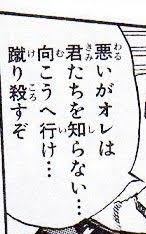 悪いがオレは
君たちを知らない…
向こうへ行け…
蹴り殺すぞ